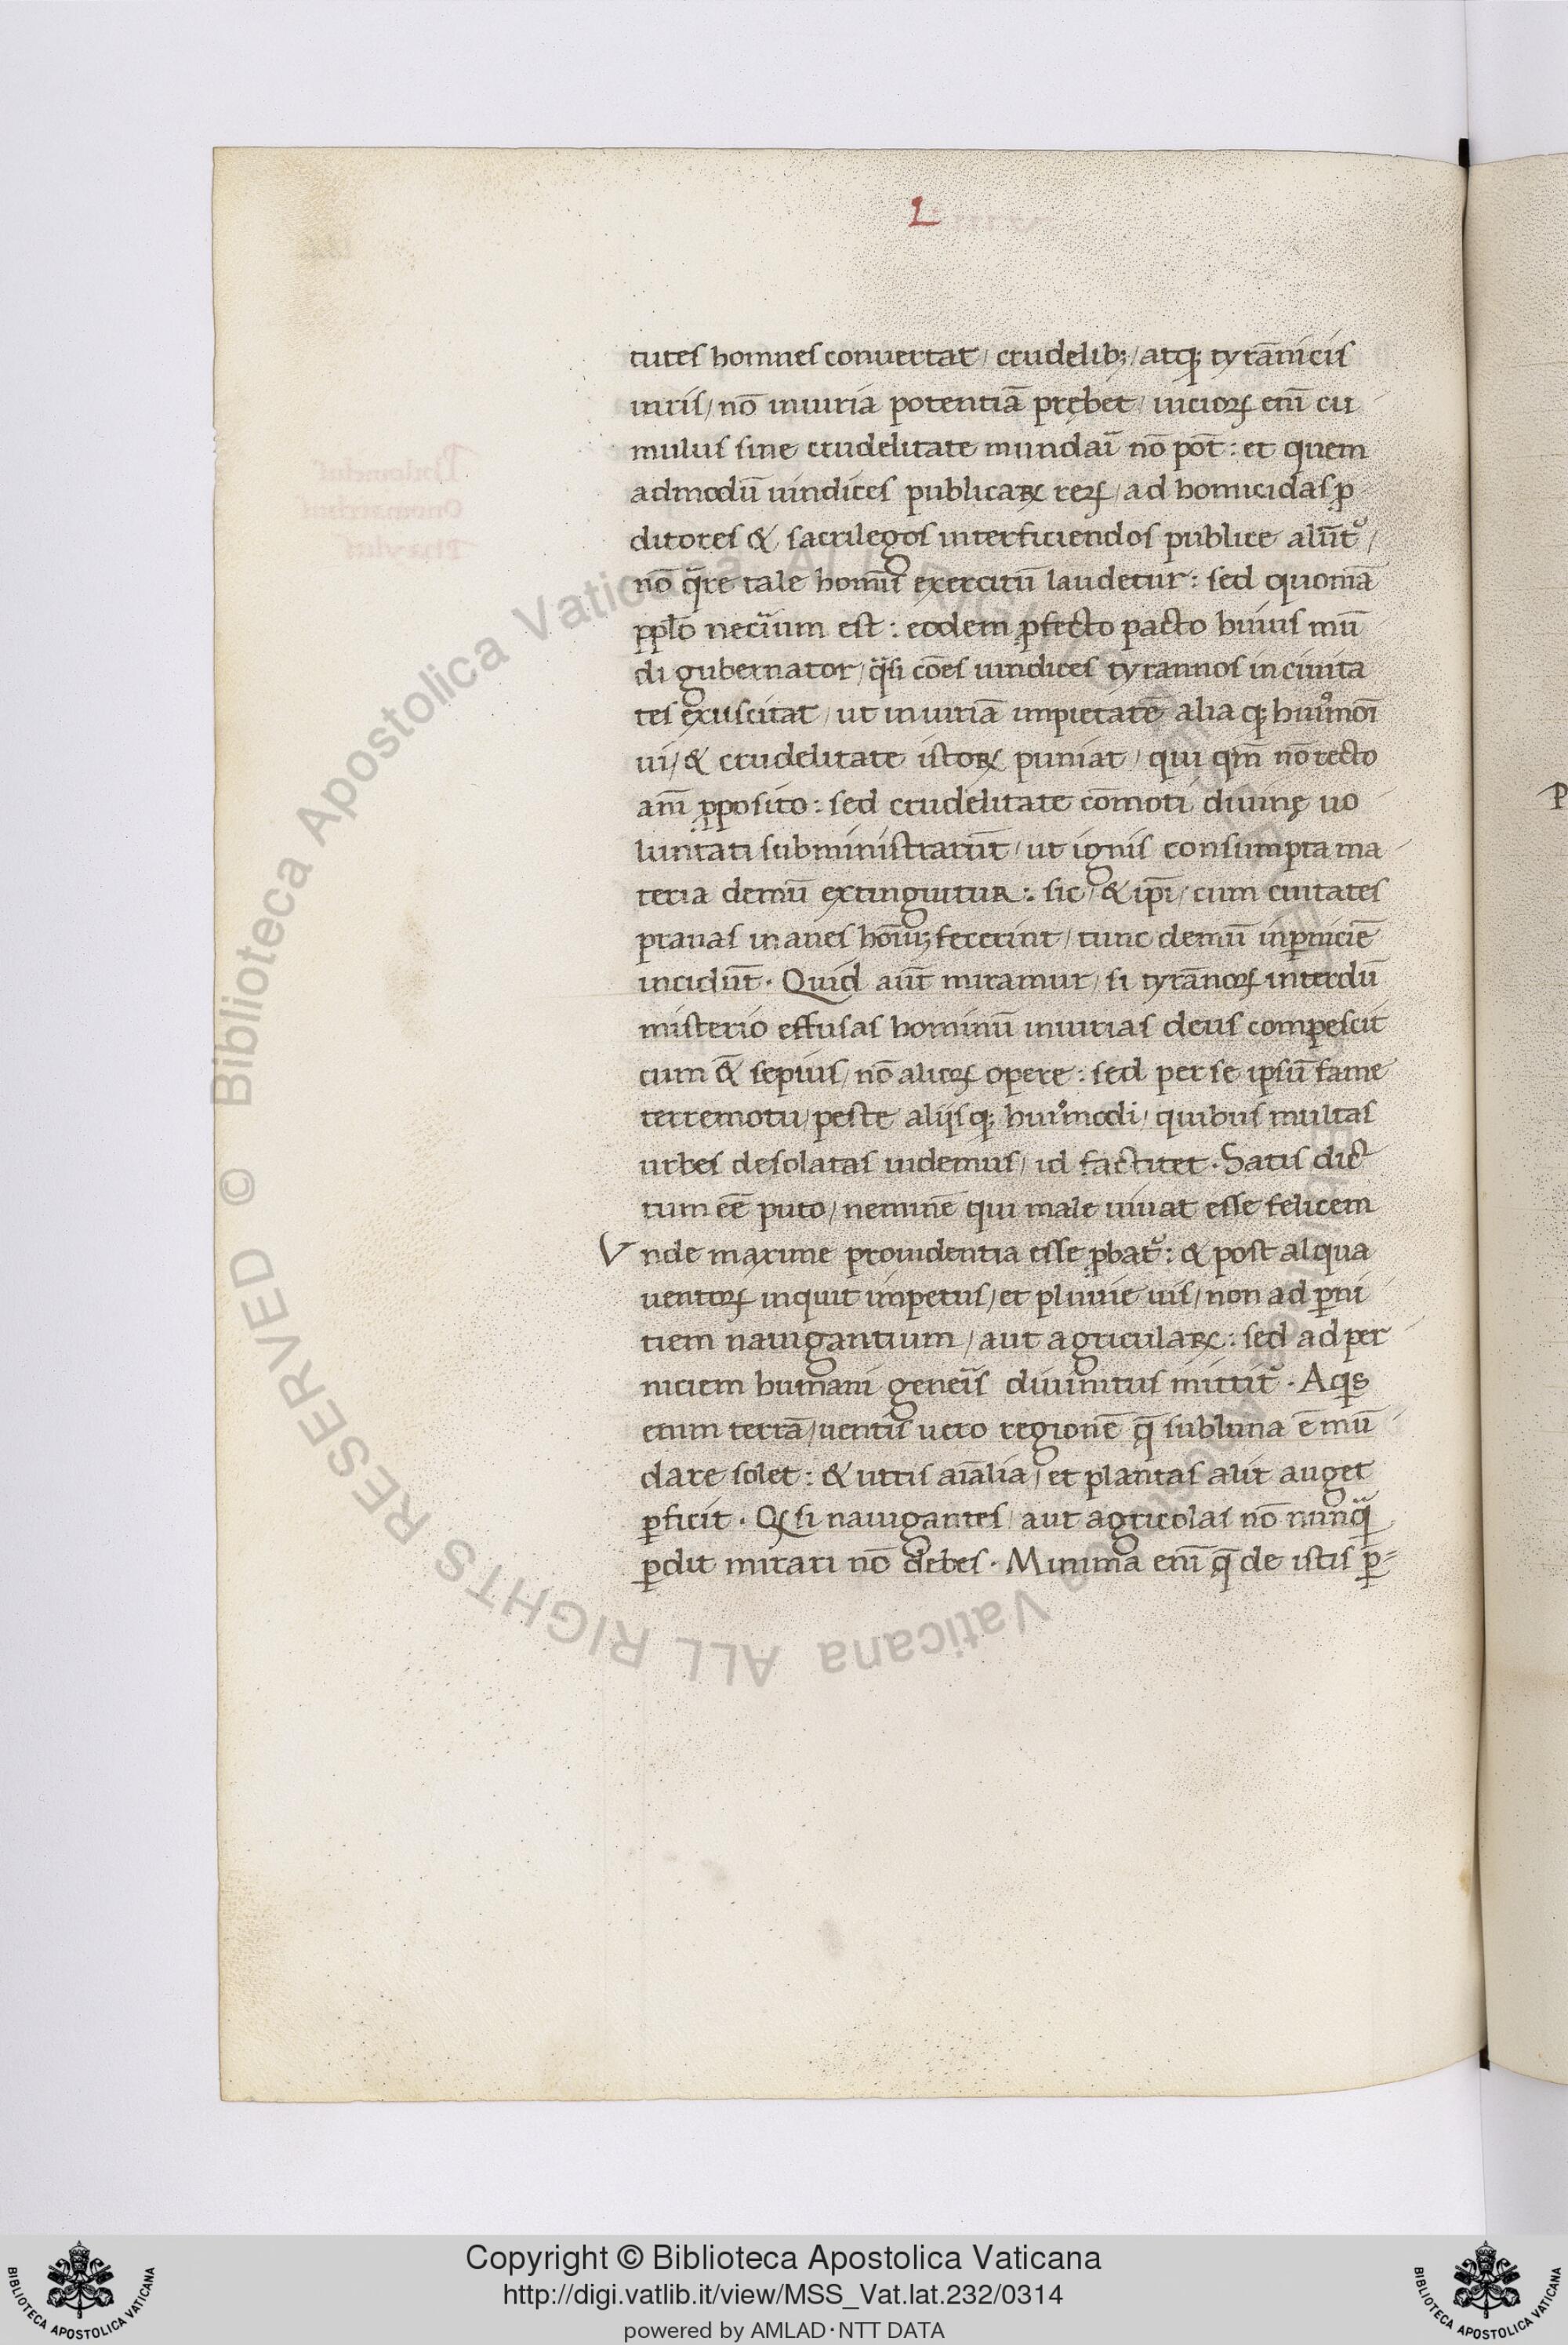 L
tutes homnes conuertat / crudelib; / atq; tyrānicis
uiris / nō iniuria potentiā prębet / uiciorꝝ eni᷑ cu
mulus sine crudelitate mundari nō pōt : et quem
admodū uindices publicaꝝ rerꝝ / ad homicidas ꝓ
ditores & sacrilegos interficiendos publice alūt᷑ /
nō q̈re tale homīū exercitū laudetur : sed quoniā
pplō necīum est : eodem ꝓfecto pacto huius mū
di gubernator / q̈si cōes uindices tyrannos in ciuita
tes exuscitat / ut iniuriā impietatē aliaq; huiꝰmōi
ui / & crudelitate istoꝝ puniat / qui qm̄ nō recto
ani᷑ ꝓposito : sed crudelitate cōmoti diuinę uo
luntati subministrarūt / ut ignis consumpta ma
teria demū extinguitur : sic / & ip̄i / cum ciuitates
prauas inanes hoīuꝫ fecerint / tunc demū in ꝑniciē
incidūt . Quid aūt miramur / si tyrānorꝝ interdū
misterio effusas hominū iniurias deus compescit
cum & sepius / nō aliorꝝ opere : sed per se ipsū fame
terremotu / peste alijsq; huiꝰmodi / quibus multas
urbes desolatas uidemus / id factitet . Satis dic
tum eē puto / neminē qui male uiuat esse felicem
Vnde maxime prouidentia esse ꝓbat᷑ : & post alqua
uentorꝝ inquit impetus / et pluuie uis / non ad ꝑni
tiem nauigantium / aut agriculaꝝ : sed ad per
niciem humani geneis diuinitus mittit᷑ . Aqis
enim terrā / uentis uero regionē q̄ subluna ē mū
dare solet : & utris aīalia / et plantas alit auget
ꝑficit . Qꝫ si nauigantes / aut agricolas nō nunq̈
ꝑdit mirari nō debes . Minima eni᷑ q̄ de istis ꝑ-
Copyright © Biblioteca Apostolica Vaticana
http://digi.vatlib.it/view/MSS_Vat.lat.232/0314
powered by AMLAD·NTT DATA
BIBLIOTECA APOSTOLICA VATICANA
BIBLIOTECA APOSTOLICA VATICANA